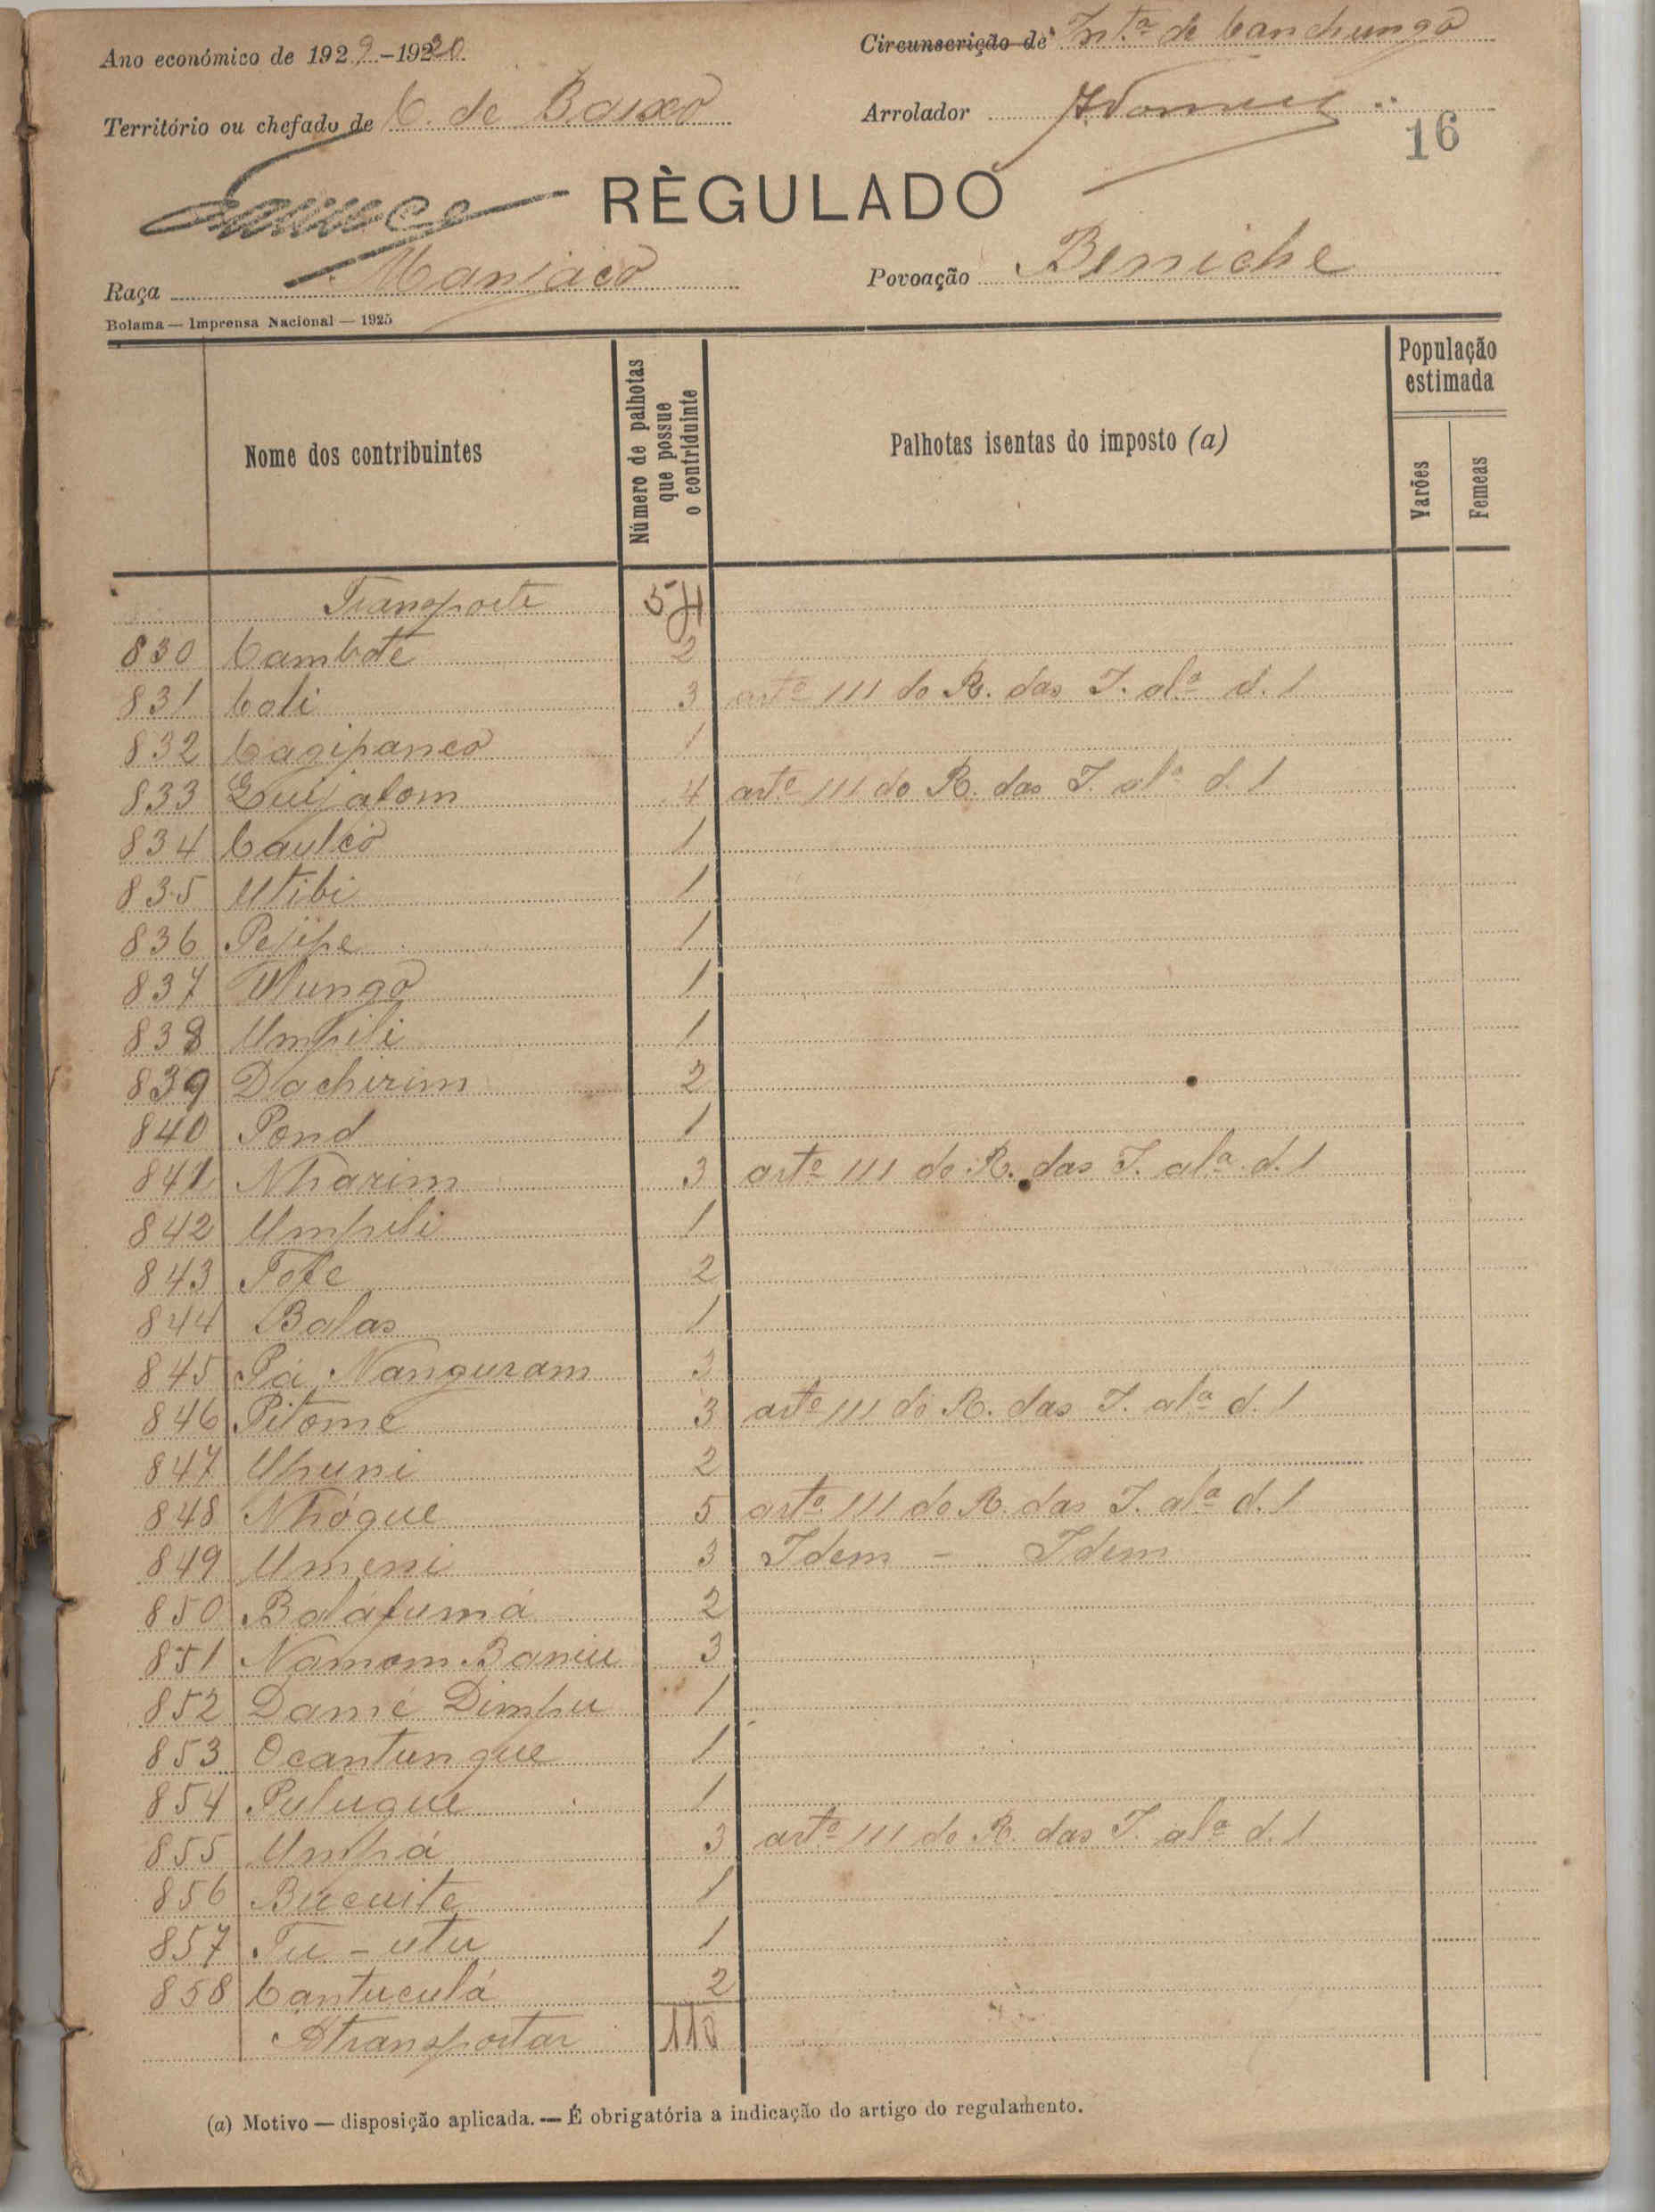 Ano económico de 1929-1930
Circunscrição de Int.ª de Canchungo
Território ou chefado de C. de Baixo
Arrolador
16
RÈGULADO
Raça Manjaco
Povoação Beniche
Bolama — Imprensa Nacional — 1925
Nome dos contribuintes
Número de palhotas que possue o contriduinte
Palhotas isentas do imposto (a)
População estimada
Varões
Femeas
Transporte 54
830 Cambote 2
831 Cali 3 artº 111 do R. das I. alª d. 1
832 Cazipanco 1
833 Quijalom 4 artº 111 do R. das I. alª d. 1
834 Caulcó 1
835 Utibi 1
836 Pejipe 1
837 Ulungo 1
838 Umpili 1
839 Dachirim 2
840 Pond 1
841 Nharim 3 artº 111 do R. das I. alª d. 1
842 Umpili 1
843 Tete 2
844 Balas 1
845 Pá Nanguram 3
846 Pitome 3 artº 111 do R. das I. alª d. 1
847 Uhuni 2
848 Nhógue 5 artº 111 do R. das I. alª d. 1
849 Umeni 3 Idem - Idem
850 Balafumá 2
851 Namom Baniu 3
852 Damé Dimpu 1
853 Ocantungue 1
854 Pulugue 1
855 Umpá 3 artº 111 do R. das I. alª d. 1
856 Bucuite 1
857 Tu - utu 1
858 Cantuculá 2
A transportar 110
(a) Motivo — disposição aplicada. — É obrigatória a indicação do artigo do regulamento.